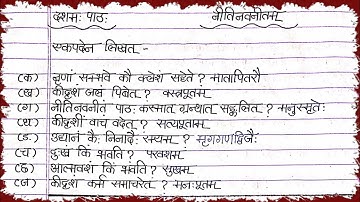 दशमः पाठः नीतिनवनीतम्
एकपदेन लिखत -
(क) नृणां सम्भवे कौ क्लेशं सहेते ? मातापितरौ
(ख) कीदृशं जलं पिबेत् ? वस्त्रपूतम्
(ग) नीतिनवनीतं पाठः कस्मात् ग्रन्थात् सङ्कलित ? मनुस्मृतेः
(घ) कीदृशीं वाचं वदेत् ? सत्यपूताम्
(ङ) उद्यानं कैः निनादैः रम्यम् ? मृगगणद्विजैः
(च) दुःखं किं भवति ? परवशम्
(छ) आत्मवशं किं भवति ? सुखम्
(ज) कीदृशं कर्म समाचरेत् ? मनःपूतम्